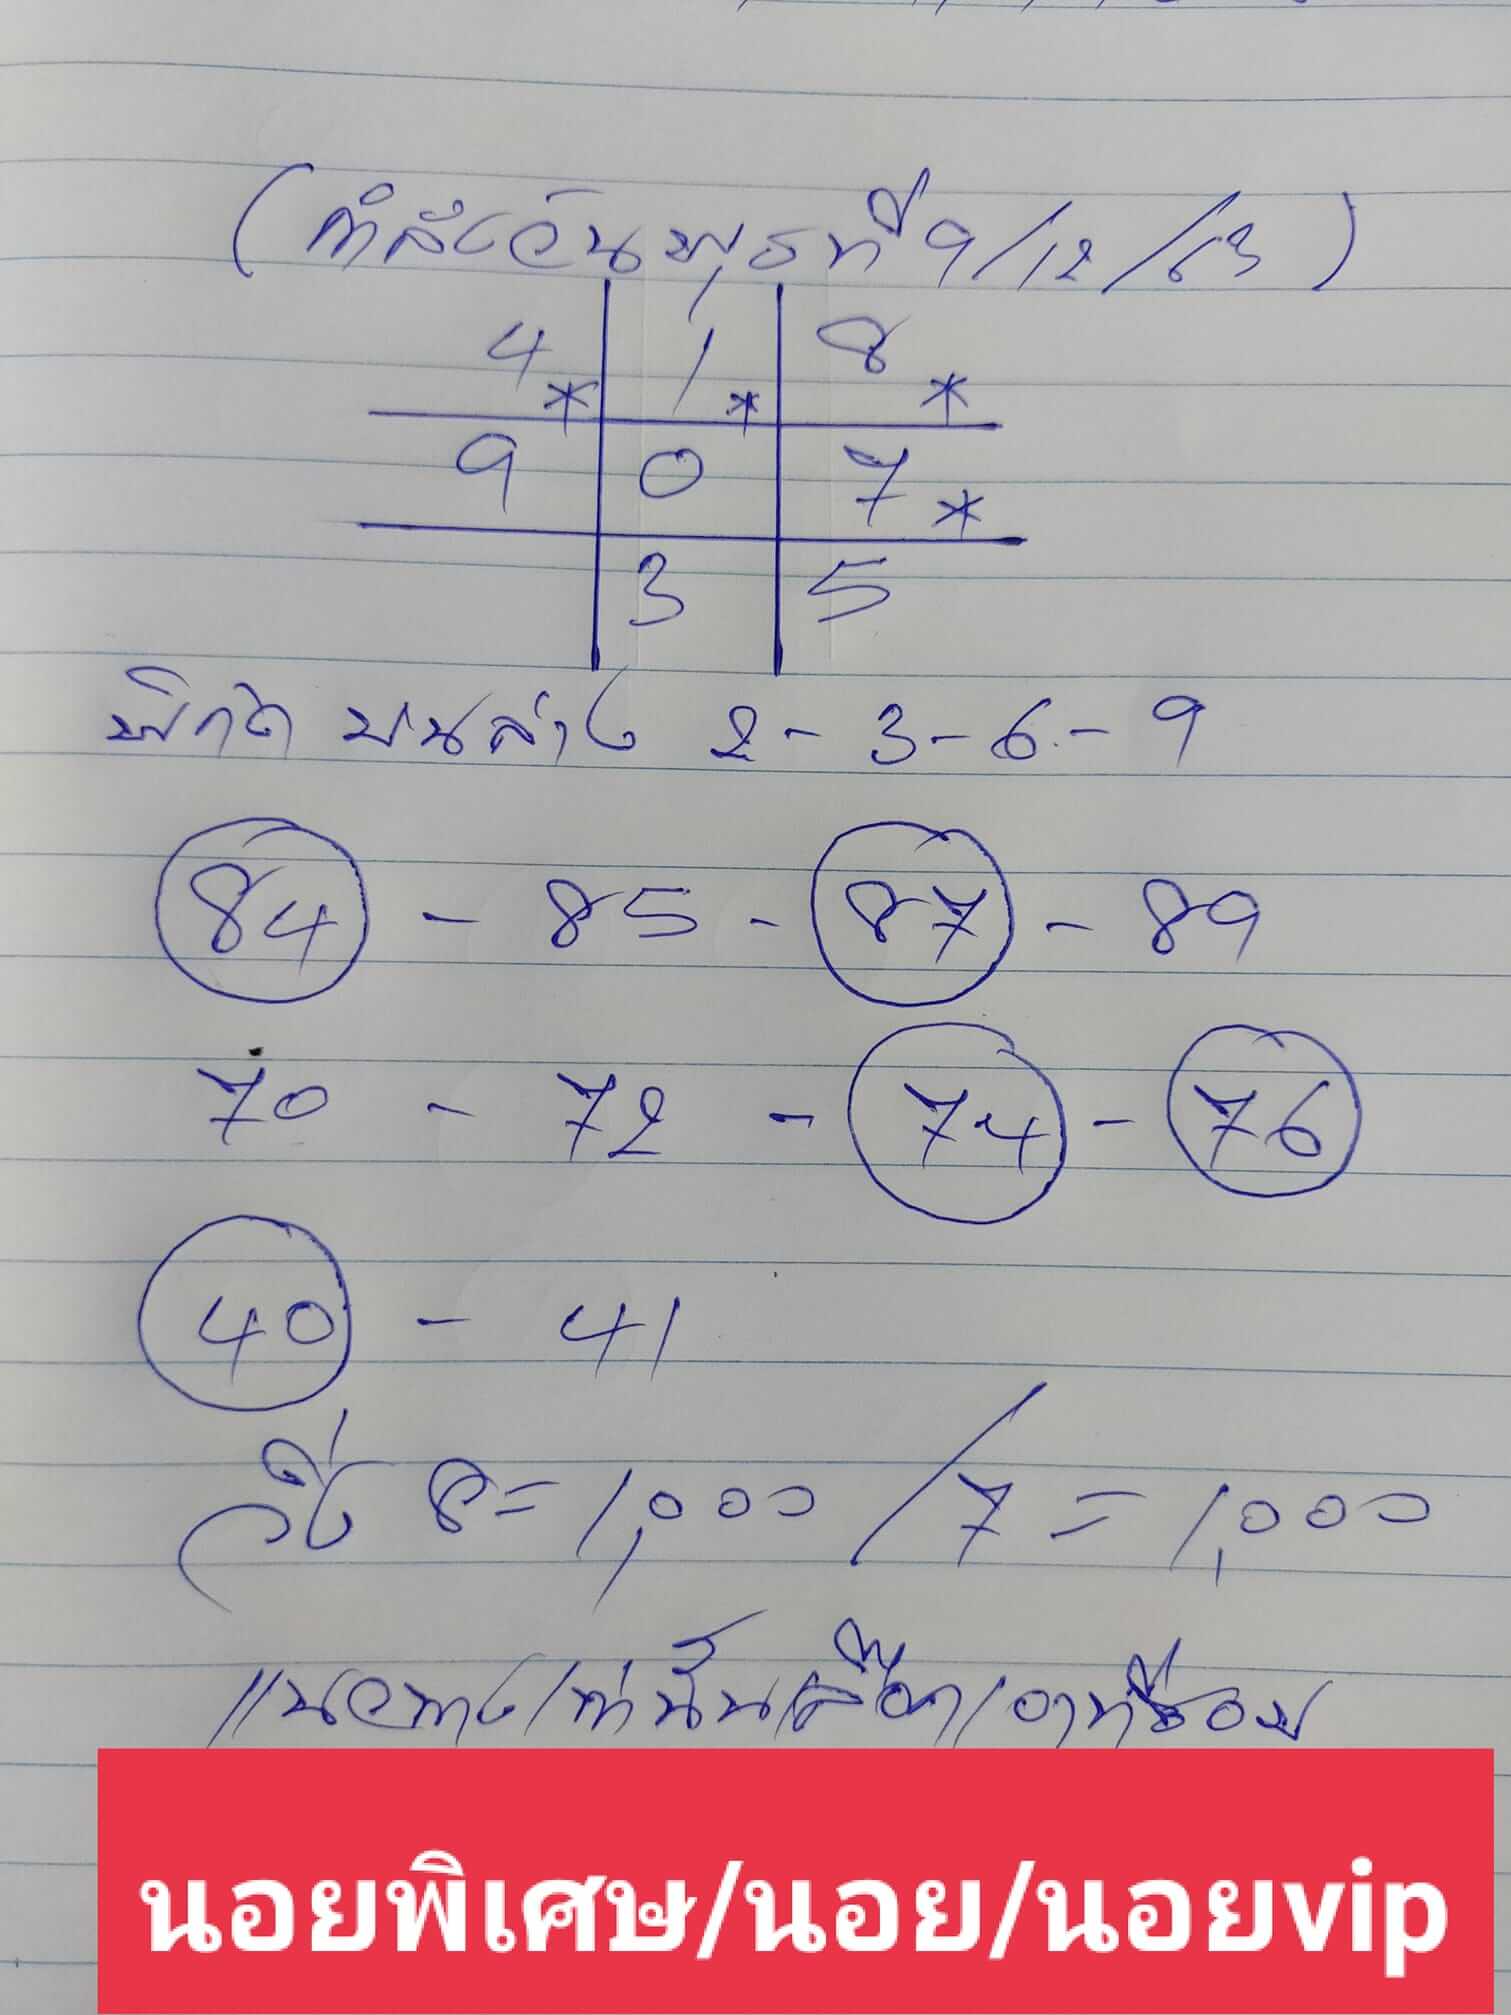 (กำลังวันพุธที่ 9/12/63)
4* 1* 8*
9 0 7*
3 5
พิกัด บนล่าง 2-3-6-9
84 - 85 - 87 - 89
70 - 72 - 74 - 76
40 - 41
วิ่ง 8=1,000/7=1,000
แนวทางเท่านั้นเลือกเอาที่ชอบ
นอยพิเศษ/นอย/นอยvip